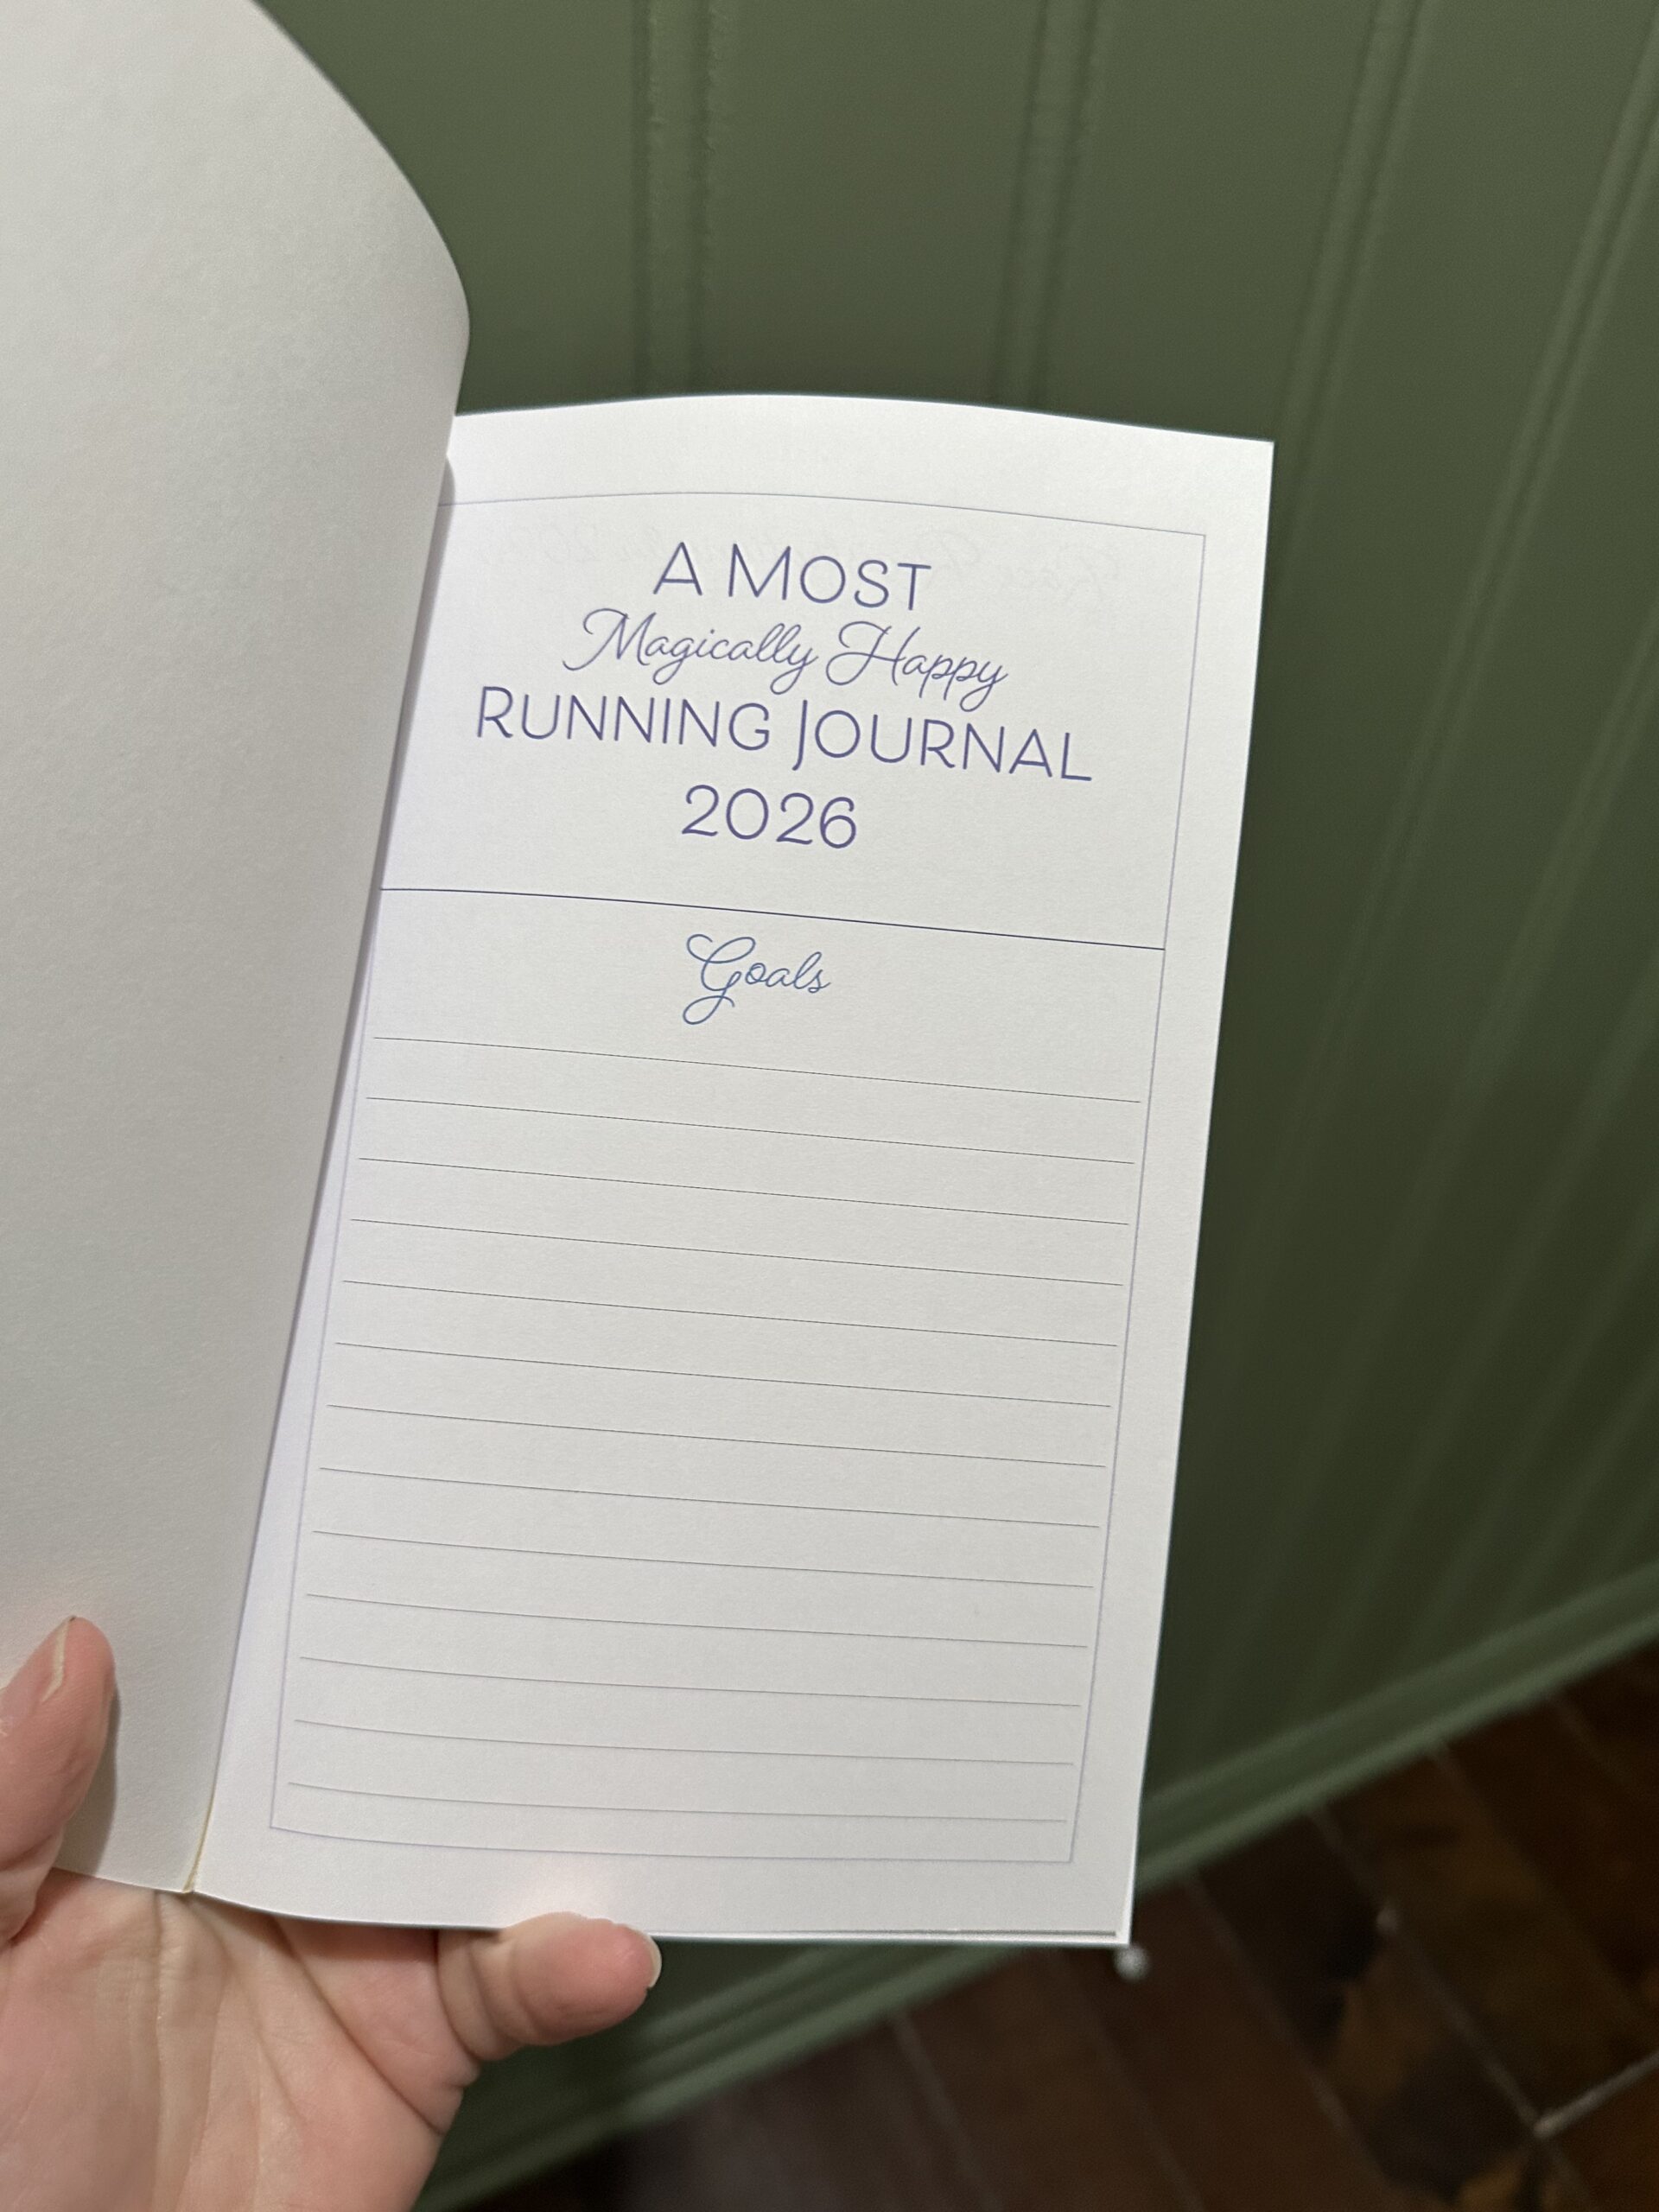 A MOST
Magically Happy
RUNNING JOURNAL
2026
Goals